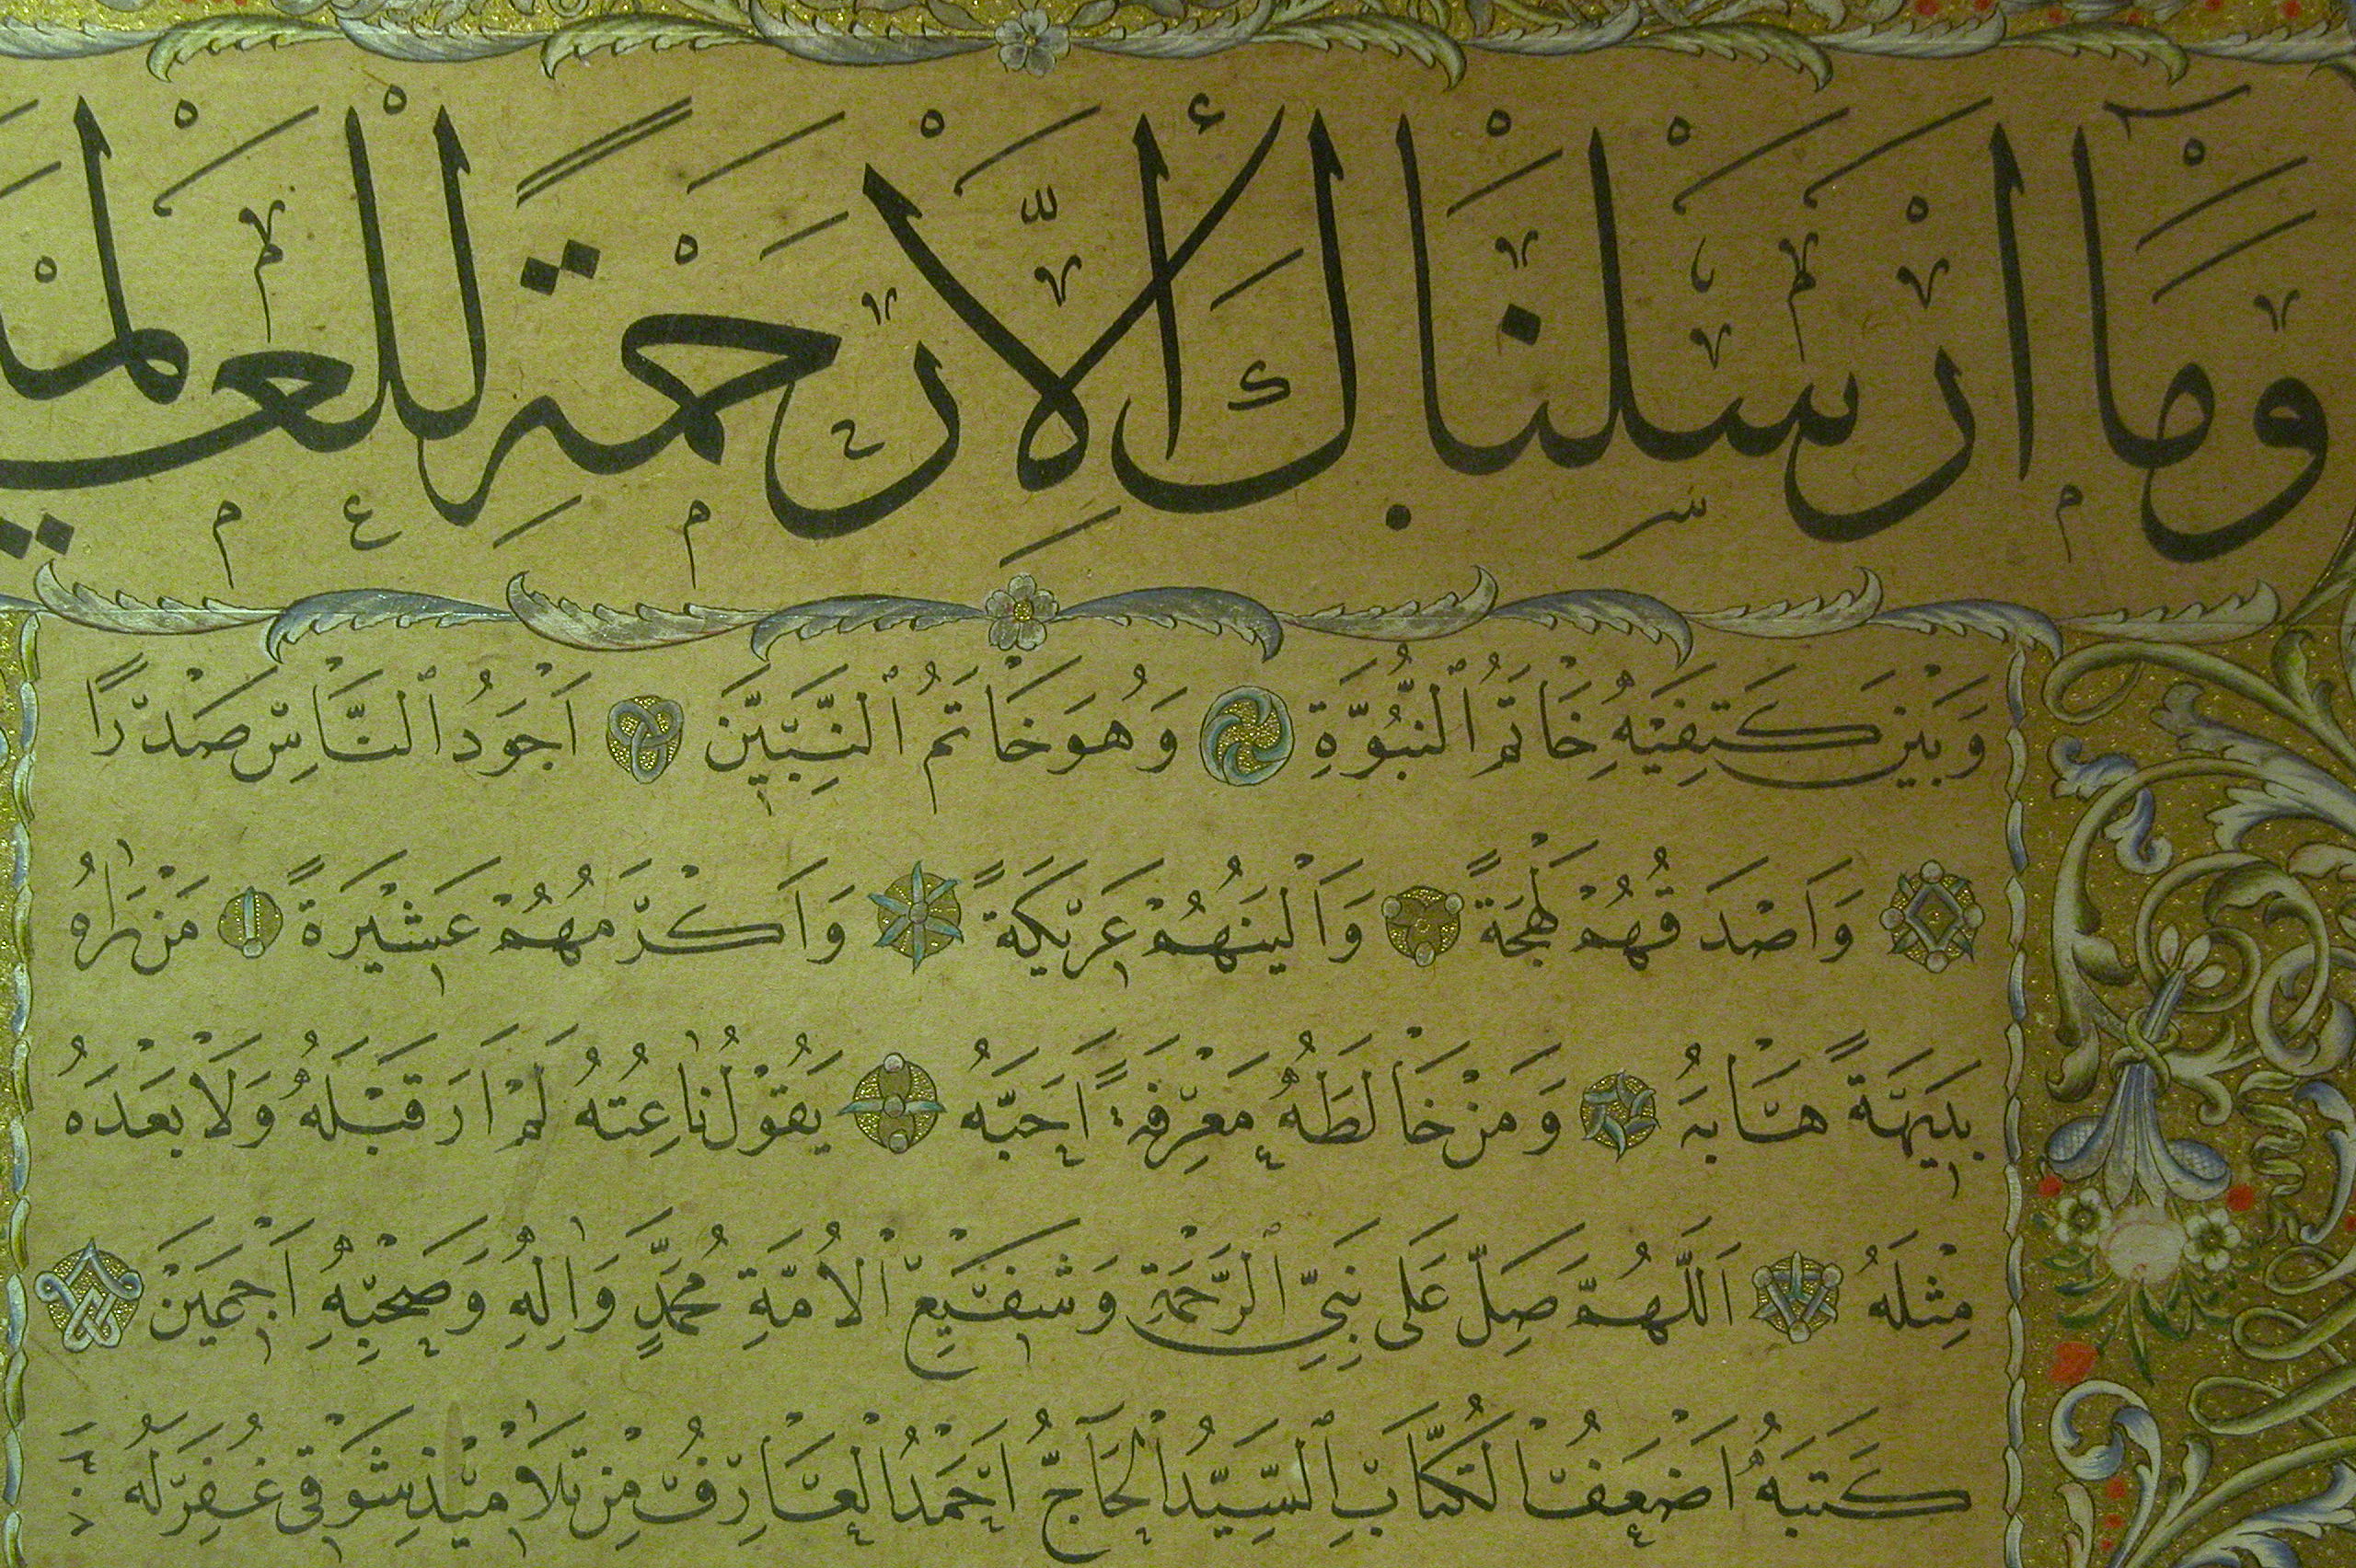 وَمَٓا اَرْسَلْنَاكَ اِلَّا رَحْمَةً لِلْعَالَمِي
وَبَيْنَ كَتِفَيْهِ خَاتَمُ ٱلنُّبُوَّةِ وَهُوَ خَاتَمُ ٱلنَّبِيِّينَ اَجْوَدُ ٱلنَّاسِ صَدْرًا
وَاَصْدَقُهُمْ لَهْجَةً وَاَلْيَنُهُمْ عَرِيكَةً وَاَكْرَمُهُمْ عَشِيْرَةً مَنْ رَاٰهُ
بَدِيهَةً هَابَهُ وَمَنْ خَالَطَهُ مَعْرِفَةً اَحَبَّهُ يَقُوْلُ نَاعِتُهُ لَمْ اَرَ قَبْلَهُ وَلَا بَعْدَهُ
مِثْلَهُ اَللّٰهُمَّ صَلِّ عَلَى نَبِيِّ ٱلرَّحْمَةِ وَشَفِيْعِ الْاُمَّةِ مُحَمَّدٍ وَاٰلِهِ وَصَحْبِهِ اَجْمَعِيْنَ
كَتَبَهُ اَضْعَفُ الْكُتَّابِ ٱلسَّيِّدُ الْحَاجُّ اَحْمَدُ الْعَارِفُ مِنْ تَلَامِيْذِ شَوْقِى غُفِرَ لَهُ